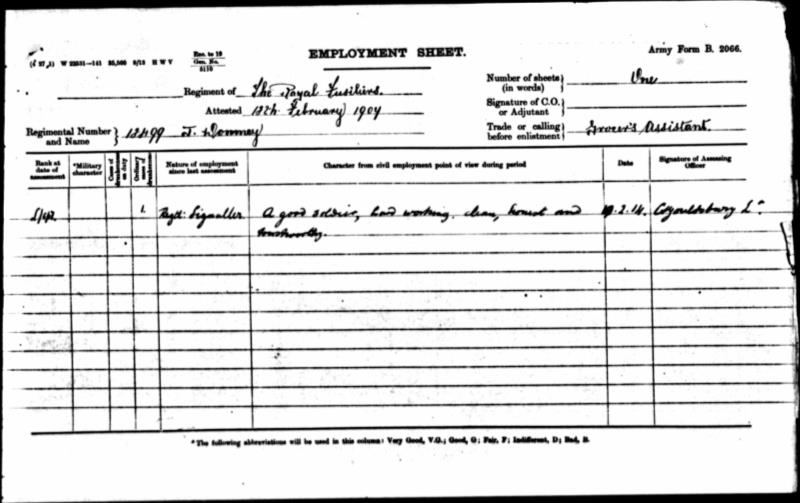 EMPLOYMENT SHEET.
Army Form B. 2066.
Regiment of The Royal Fusiliers.
Attested 12th February 1904
Regimental Number and Name } 12499 J. Downey
Number of sheets (in words) } One
Signature of C.O. or Adjutant }
Trade or calling before enlistment } Grocer's Assistant.
Rank at date of assessment
*Military character
Cases of drunkenness on duty
Ordinary cases of drunkenness
Nature of employment since last assessment
Character from civil employment point of view during period
Date
Signature of Assessing Officer
1. Regtl: Signaller A good soldier, hard working. clean, honest and
trustworthy.
2.14.
*The following abbreviations will be used in this column: Very Good, V.G.; Good, G; Fair, F; Indifferent, D; Bad, B.